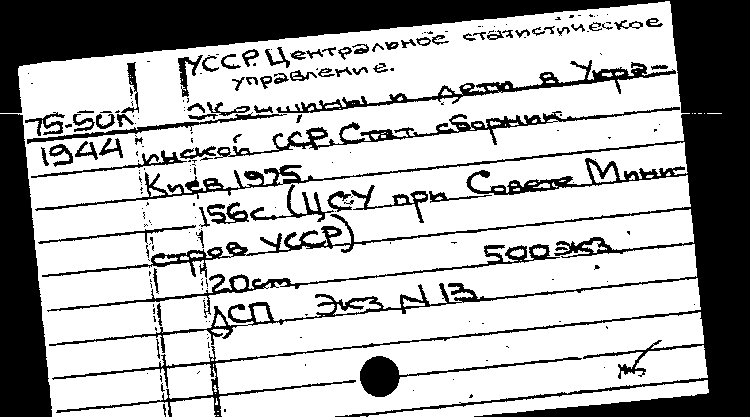 УССР. Центральное статистическое
управление.
75-50К Женщины и дети в Укра-
1944 инской ССР. Стат. сборник.
Киев, 1975.
156с. (ЦСУ при Совете Мини-
стров УССР).
500 экз.
20 cm.
ДСП. Экз. N 13.